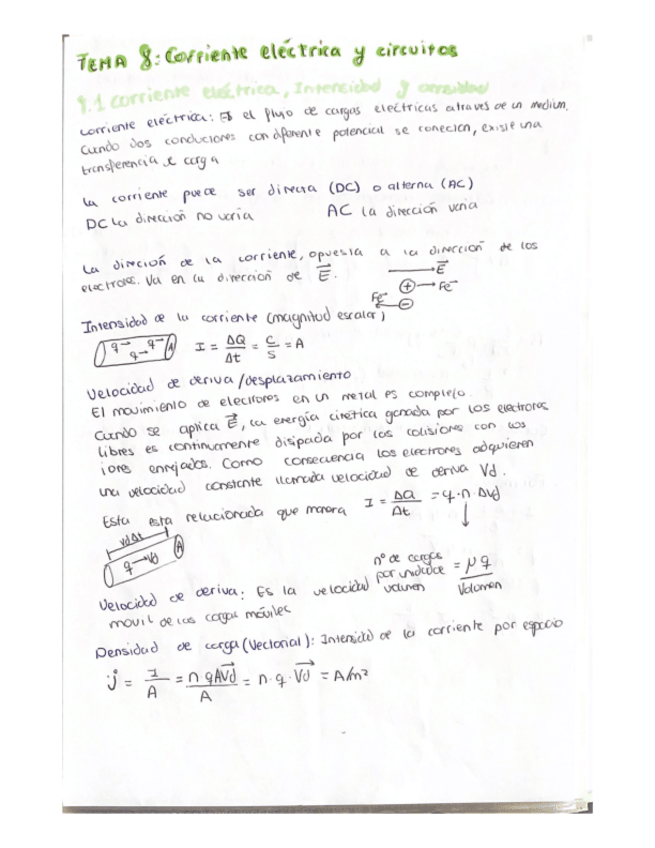 TEMA 8: Corriente eléctrica y circuitos
8.1 corriente eléctrica, Intencidad y densidad
corriente eléctrica: Es el flujo de cargas electricas a traves de un medium.
Cundo dos conductores con diferente potencial se conectan, existe una
transferencia de carga
La corriente puece ser directa (DC) o alterna (AC)
DC La dirección no varia AC la dirección varia
La direción de la corriente, opuesta a la dirección de los
electrones. Va en la direccion de E⃗.
E⃗
⊕ → Fe
Fe ← ⊖
Intensidad de la corriente (magnitud escalar)
q→ q→ q→ A I = ΔQ/Δt = C/s = A
Velocidad de deriva/desplazamiento
El movimiento de electrones en un metal es complejo.
Cundo se aplica E⃗, la energía cinética ganada por los electrones
libres es continuamente disipada por las colisiones con los
iones enrejados. Como consecuencia los electrones adquieren
una velocidad constante llamada velocidad de deriva Vd.
Esta esta relacionada que manera I = ΔQ/Δt = q·n·ΔVd
vdΔt
q→Vd A
nº de cargas
por unidad de = Nq/Volumen
volumen
Velocidad de deriva: Es la velocidad
movil de las cargas móviles
Densidad de carga (Vectorial): Intensidad de la corriente por espacio
j = I/A = nqAVd⃗/A = n·q·Vd⃗ = A/m²